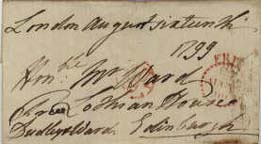 London August sixteenth
1799
Hon.ble Mr Ward
Free Lothian House
Dudley & Ward Edinburgh